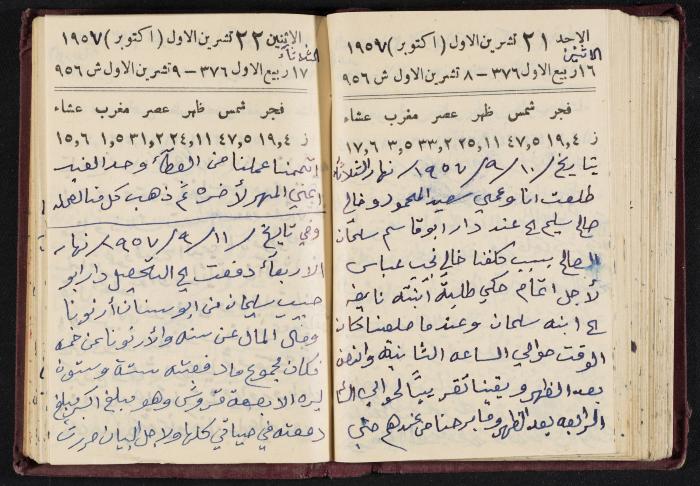 الاحد ٢١ تشرين الاول (اكتوبر) ١٩٥٧
الاثنين
١٦ ربيع الاول ٣٧٦ – ٨ تشرين الاول ش ٩٥٦
فجر شمس ظهر عصر مغرب عشاء
ز ١٩,٤ ٤٧,٥ ٢٥,١١ ٣٣,٢ ٣,٥ ١٧,٦
بتاريخ ١٠/٩/١٩٥٧ نهار الثلاثاء
طلعت انا وعمي سعيد المحمود وخالي
صالح سليم الى عند دار ابو قاسم سلمان
الصالح بسبب كلفنا خالي نجيب عباس
لأجل اتمام حكي طلبة ابنته نايفه
الى ابنه سلمان وعندما طلعنا كان
الوقت حوالي الساعه الثانية والنصف
بعد الظهر وبقينا تقريباً لحوالي
الرابعه بعد الظهر وما برحنا من عندهم حتى
الاثنين ٢٢ تشرين الاول (اكتوبر) ١٩٥٧
الثلاثاء
١٧ ربيع الاول ٣٧٦ – ٩ تشرين الاول ش ٩٥٦
فجر شمس ظهر عصر مغرب عشاء
ز ١٩,٤ ٤٧,٥ ٢٤,١١ ٣١,٢ ١,٥ ١٥,٦
اتممنا عملنا من العطاء وحد الفيد
اعني المهر لأخره ثم ذهب كل منا لمحله
وفي تاريخ ١١/٩/١٩٥٧ نهار
الاربعاء دفعت الى التحصيل دار ابو
حبيب سليمان من ابو سنان أرنونا
ومال المال عن سنه والأرنونا عن خمسه
فكان مجموع ما دفعته ستة وستون
ليره الا بضعة قروش وهو مبلغ اكبر مبلغ
دفعته في حياتي كلها ولأجل البيان حررت